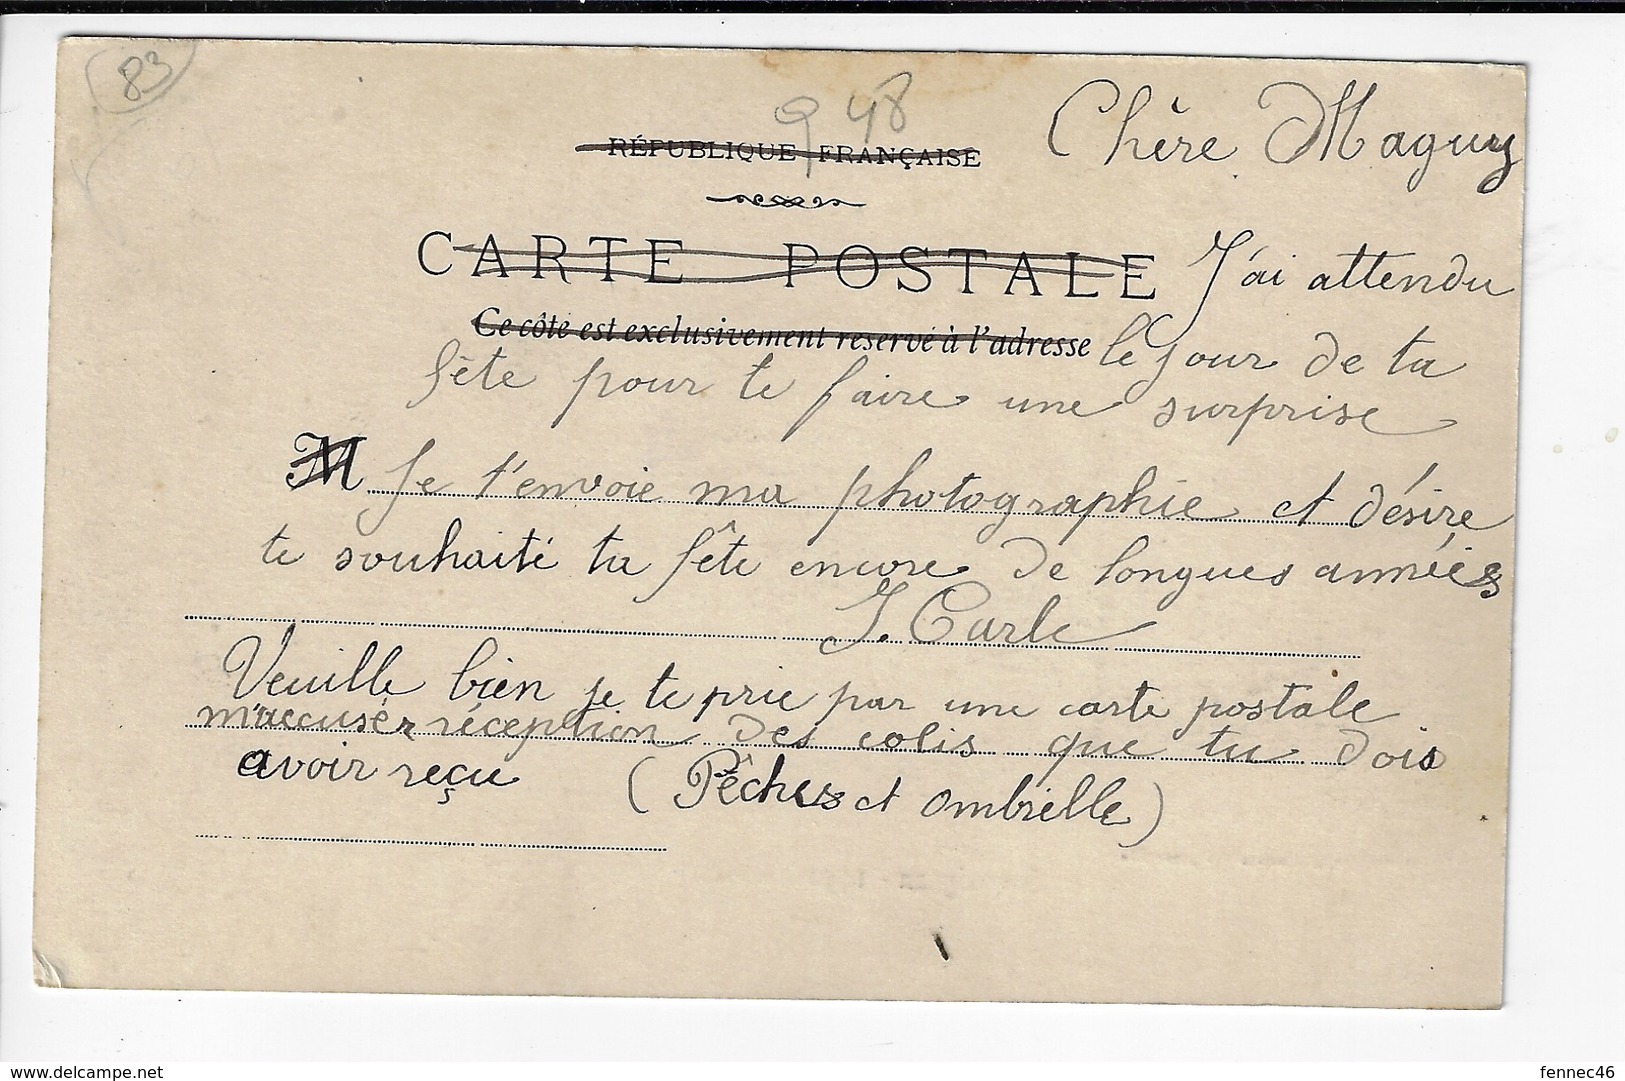 83
948
Chère Maguy
RÉPUBLIQUE FRANÇAISE
CARTE POSTALE
J'ai attendu
Ce côté est exclusivement reservé à l'adresse
le jour de ta
fête pour te faire une surprise
M Je t'envoie ma photographie et désire
te souhaité ta fête encore de longues années
J. Carle
Veuille bien je te prie par une carte postale
m'accuser réception des colis que tu dois
avoir reçu (Pêches et ombrelle)
www.delcampe.net
fennec46